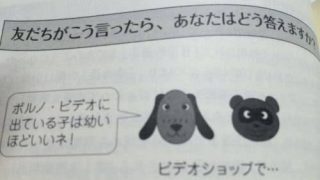 友だちがこう言ったら、あなたはどう答えますか?
ポルノ・ビデオに
出ている子は幼い
ほどいいネ!
ビデオショップで…